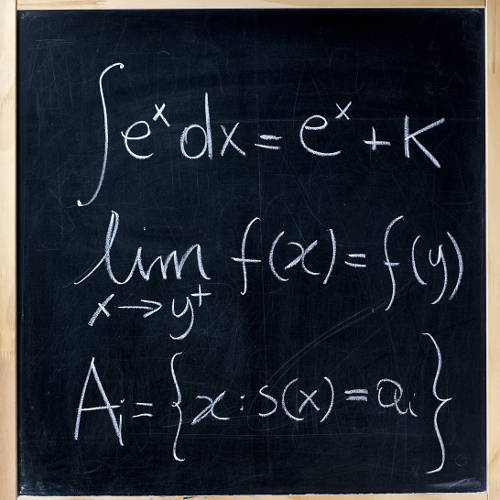 ∫eˣdx=eˣ+K
lim x→y⁺ f(x)=f(y)
Aᵢ={x:s(x)=aᵢ}